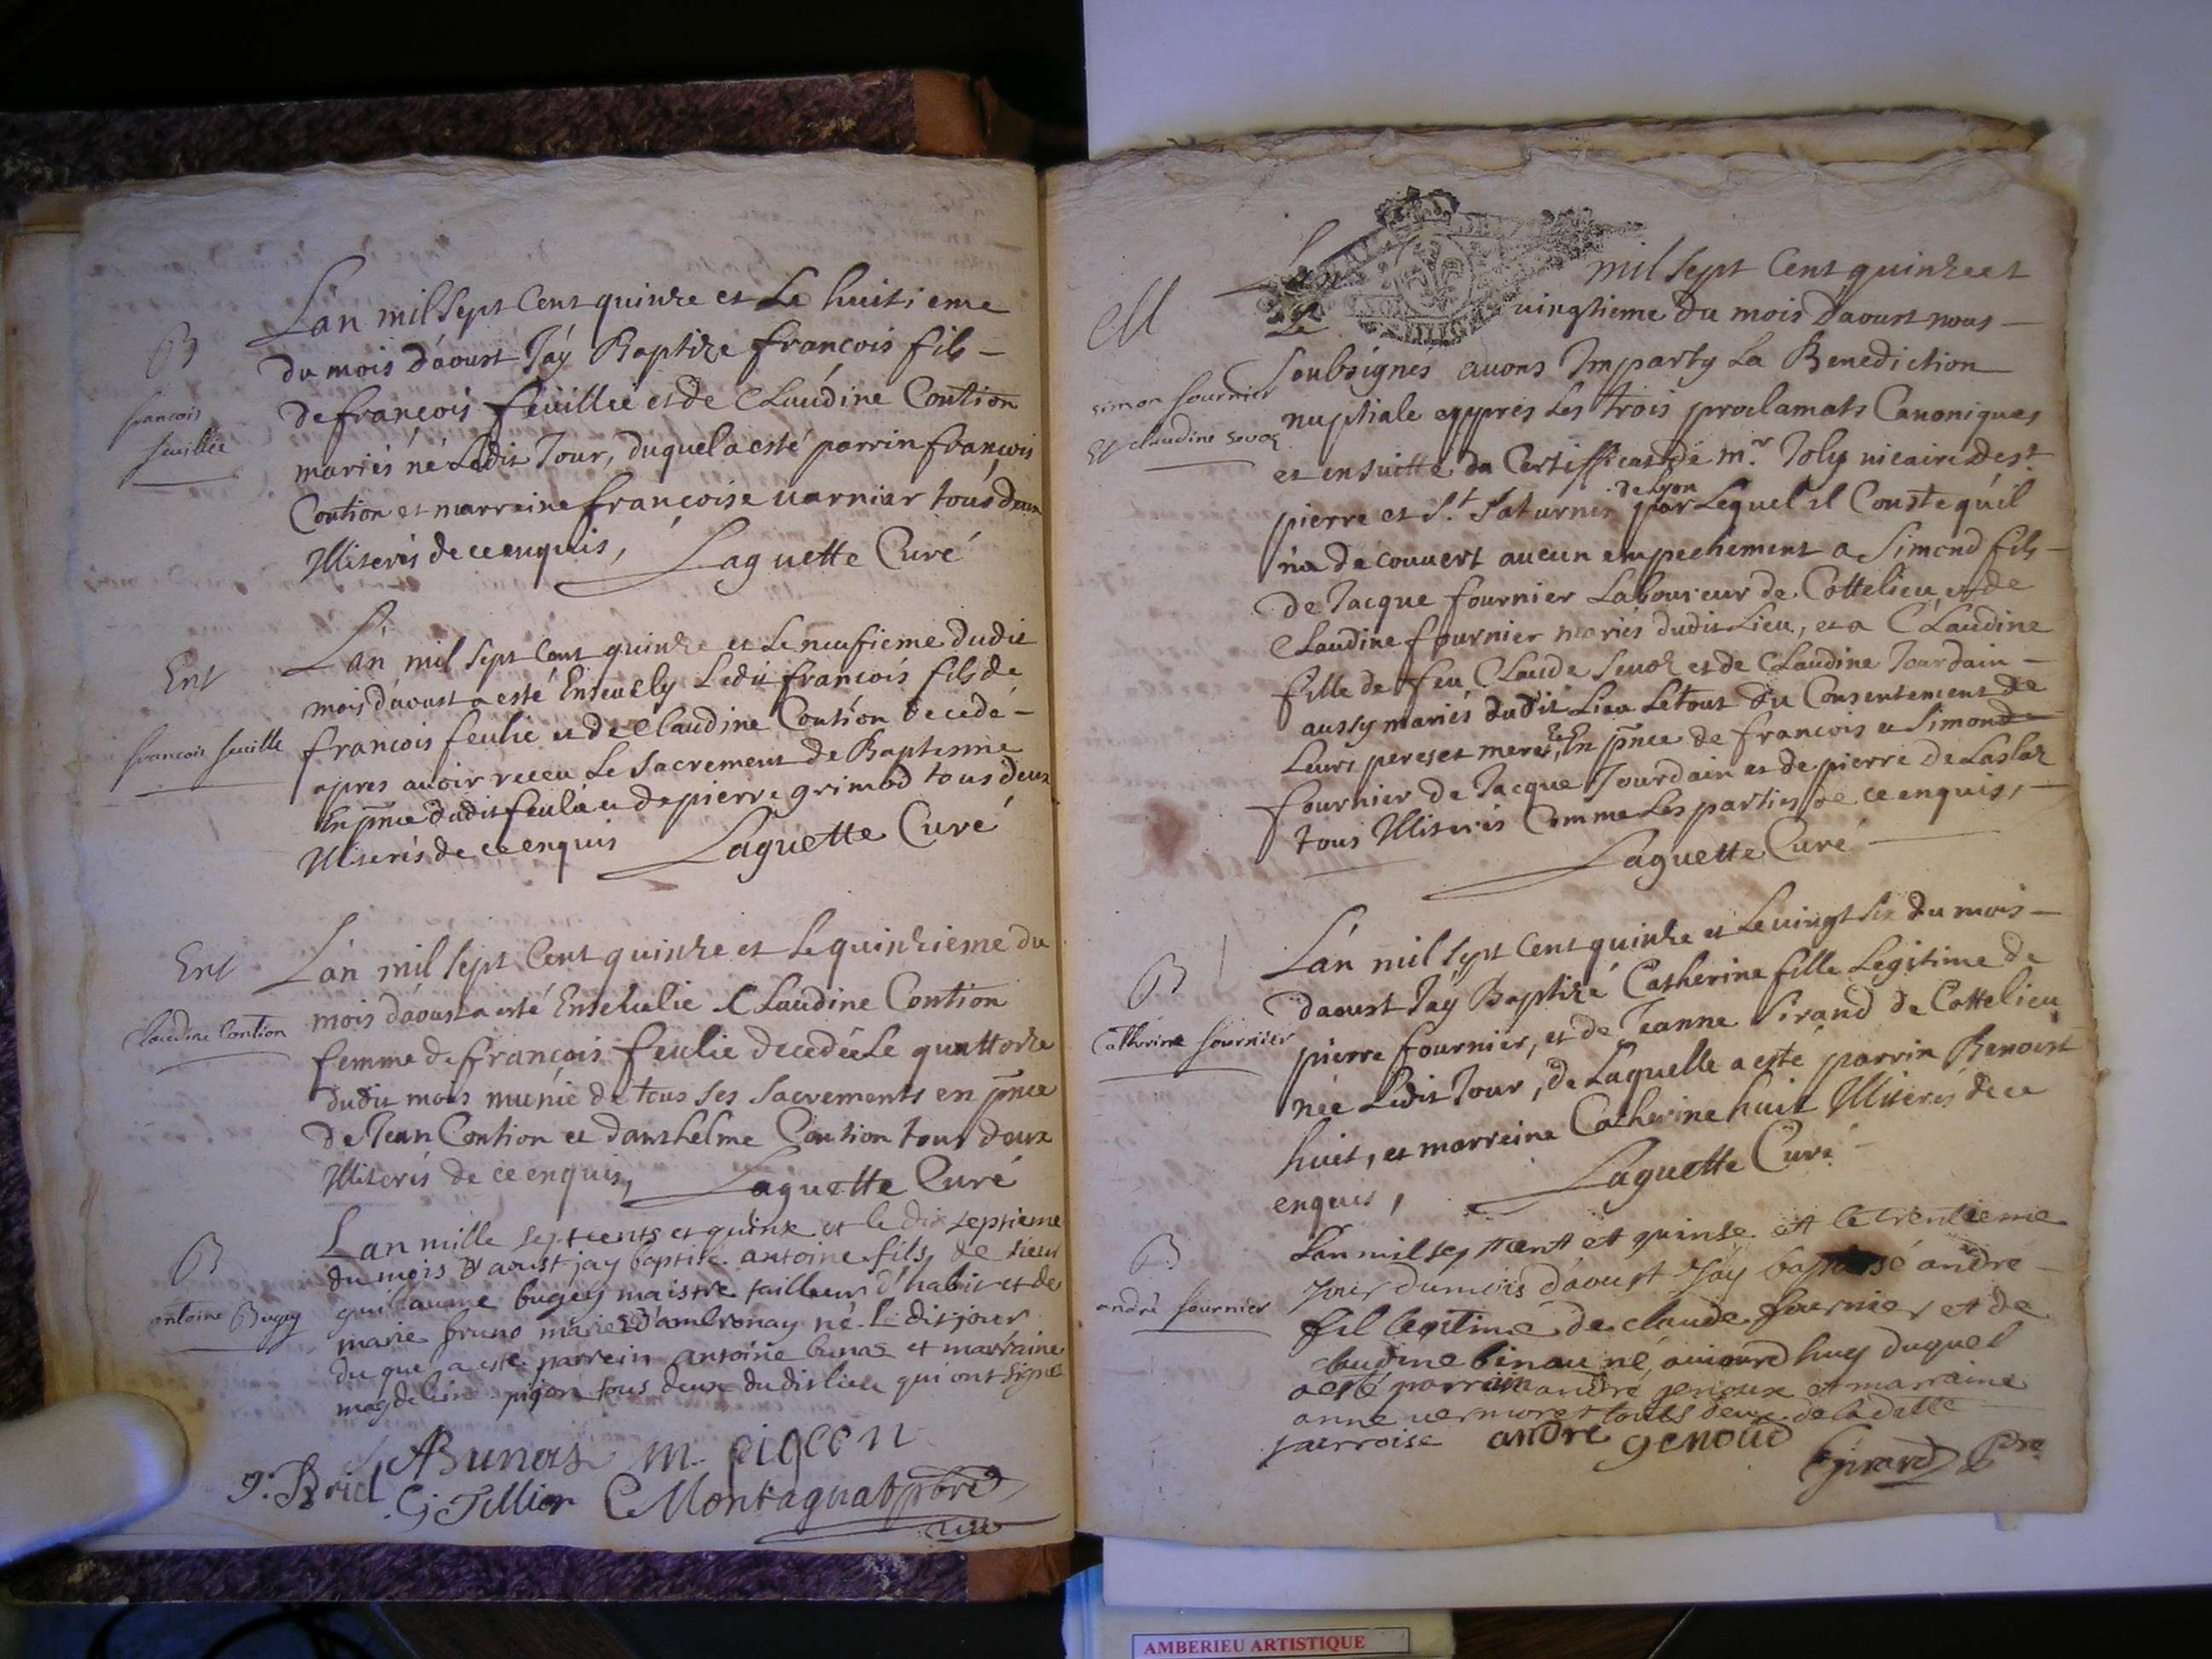 B
francois
feuillée
L'an mil sept Cent quinze et Le huitieme
du mois d'aoust J'áy Baptize françois fils –
de françois feuillée et de Claudine Contion
mariés né Ledit Jour, duquel a esté parrin françois
Contion et marreine françoise varnier tous deux
Illiterés de ce enquis, Laguette Curé
Ent
francois feuille
L'an mil sept Cent quinze et Le neufieme dudit
mois d'aoust a esté Ensevely Ledit françois fils de
françois feulie et de Claudine Contion decedé –
apres avoir receu Le Sacrement de Baptesme
En pnce dudit feulie et de pierre grimod tous deux
Illiterés de ce enquis Laguette Curé
Ent
Claudine Contion
L'an mil sept Cent quinze et Le quinzieme du
mois d'aoust a esté Ensevelie Claudine Contion
femme de françois feulie decedée Le quattorze
dudit mois munie de tous ses Sacrements en pnce
de Jean Contion et d'anthelme Contion tous deux
Illiterés de ce enquis, Laguette Curé
B
antoine Bugey
L an mille sept cents et quinze et le dix septieme
du mois d'aoust jay baptisé antoine fils de sieur
guillaume bugey maistre tailleur d'habit et de
marie bruno mariés d'ambronay né le dis jour
du quel a esté parrein antoine bunas et marraine
magdeleine pigon tous deux du dis lieu qui ont signé
ABunas m. pigeon
g: Briel G Tillier C Montagnat pbre
vic
M
simon fournier
Et claudine sevoz
L mil sept Cent quinze et
Le vingtieme du mois d'aoust nous –
soubsignés avons Imparty La Benediction
nuptiale appres Les trois proclamats Canoniques
et ensuitte du Certifficat de mr. Joly vicaire de st
de lyon
pierre et St. Saturnin par Lequel il Conste qu'il
n'a découvert aucun empechement a Simond fils –
de Jacque fournier Laboureur de Cottelieu, et de
Claudine fournier mariés dudit Lieu, et a Claudine
fille de feu Claude Sevoz et de Claudine Jourdain –
aussy mariés dudit Lieu Le tout du Consentement de
Leurs peres et meres, Et En pnce de françois et Simond
fournier de Jacque Jourdain et de pierre de Laslaz
tous Illiterés Comme Les parties de ce enquis, –
Laguette Curé
B
Catherine fournier
L'án mil sept Cent quinze et Le vingt six du mois –
d'aoust J'áy Baptizé Catherine fille Legitime de
pierre fournier, et de Jeanne Sirand de Cottelieu
née Ledit Jour, de Laquelle a esté parrin Benoist
huit, et marreine Catherine huit Illiterés de ce
enquis, Laguette Curé
B
andré fournier
Lan mil sept cent et quinse et le trentieme
Jour du mois d'aoust Jáy baptisé andre
fil legitime de claude fournier et de
claudine binau né aujourd huy duquel
a esté parrein andré genoux et marraine
anne touts deux de la ditte
parroise andre genoud Girard Pre
AMBERIEU ARTISTIQUE